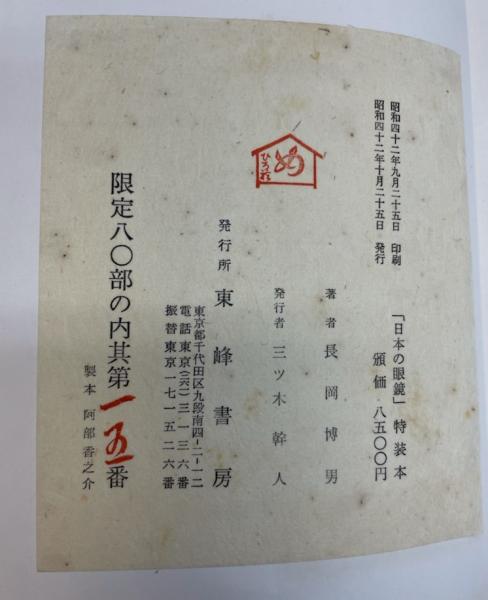 昭和四十二年九月二十五日 印刷
昭和四十二年十月二十五日 発行
「日本の眼鏡」 特装本
頒価 八五〇〇円
著者 長岡博男
発行者 三ツ木幹人
発行所 東峰書房
東京都千代田区九段南四-二-一二
電話東京(二六一)三一三六番
振替東京一七一五二六番
限定八〇部の内其第一五番
製本 阿部香之介